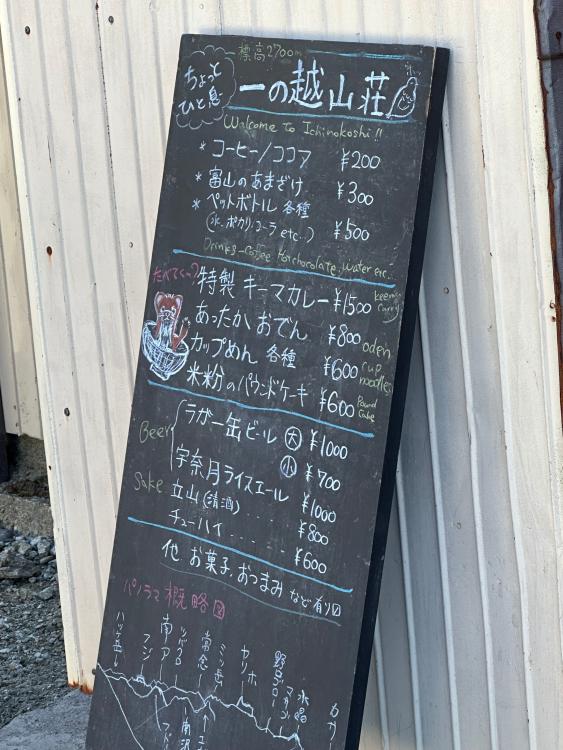 標高2700m
ちょっと
ひと息
一の越山荘
Welcome to Ichinokoshi!!
* コーヒー/ココア ¥200
* 富山のあまざけ ¥300
* ペットボトル 各種
(水、ポカリ、コーラ etc...) ¥500
Drinks-Coffee Hotchocolate, water etc...
たべてく〜?
特製 キーマカレー ¥1500
あったか おでん ¥800 oden
カップめん 各種 ¥600 cup noodles
米粉のパウンドケーキ ¥600 Pound Cake
Beer
ラガー缶ビール 大 ¥1000
小 ¥700
宇奈月ライスエール ¥1000
Sake 立山(清酒) .... ¥800
チューハイ ...... ¥600
他、お菓子、おつまみ など有り
パノラマ概略図
ハッケ岳
フジ
南ア
常念
ミツ岳
ヤリ
ホ
野口
水晶